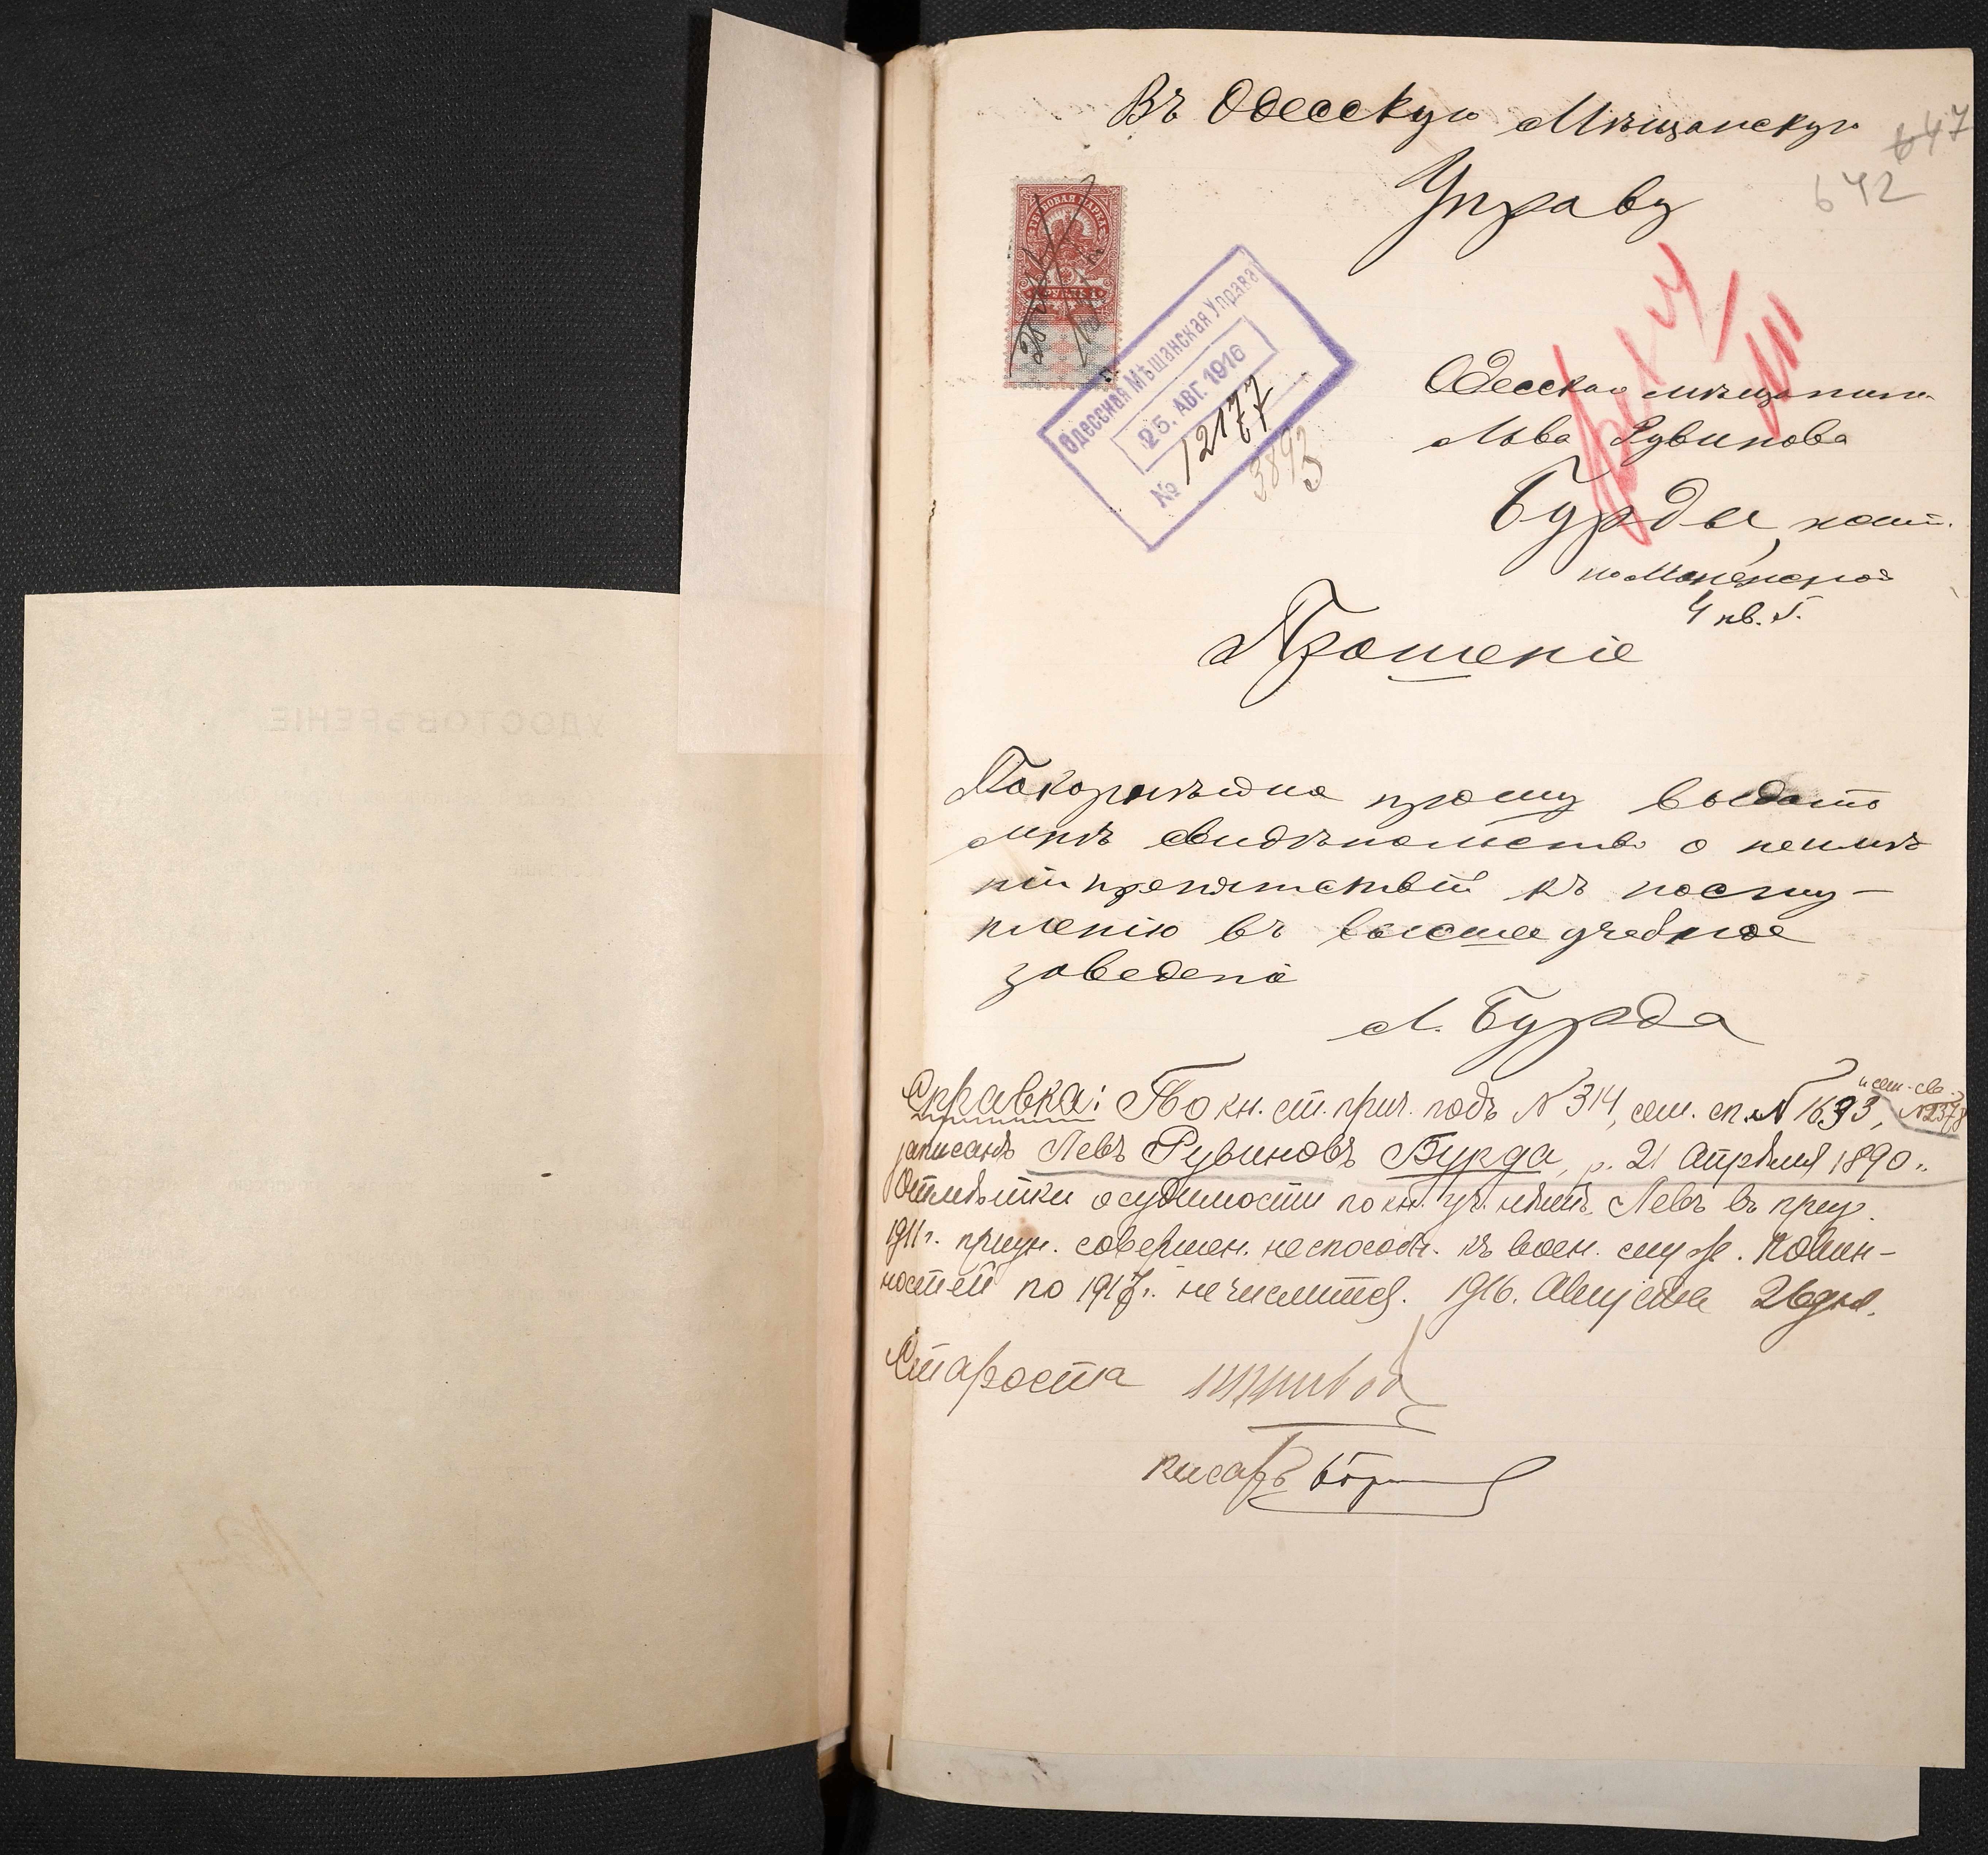 Въ Одесскую Мѣщанскую
647
Управу
642
ГЕРБОВАЯ МАРКА
РУБЛЬ 1
Одесская Мѣщанская Управа
25. АВГ. 1916
№ 12177
3893
Одесскаго мѣщанина
Льва Рувинова
Бурды,
4 кв. 5.
Прошеніе
Покорнѣйше прошу выдать
мнѣ свидѣтельство о неимѣ
ніи препятствій къ посту-
пленію въ высшее учебное
заведеніе
Л. Бурда
Справка: По кн. ст. прич. подъ № 314, сем. сп. № 1693,
№ 2378
записанъ Левъ Рувиновъ Бурда, р. 21 Апрѣля 1890 г.
Отмѣтки о судимости по кн. уч. нѣтъ. Левъ въ приз.
1911 г. призн. совершен. неспособн. къ воен. служ. Повин-
ностей по 1917 г. не числится. 1916. Августа 26 дня.
Староста
писарь
УДОСТОВѢРЕНІЕ